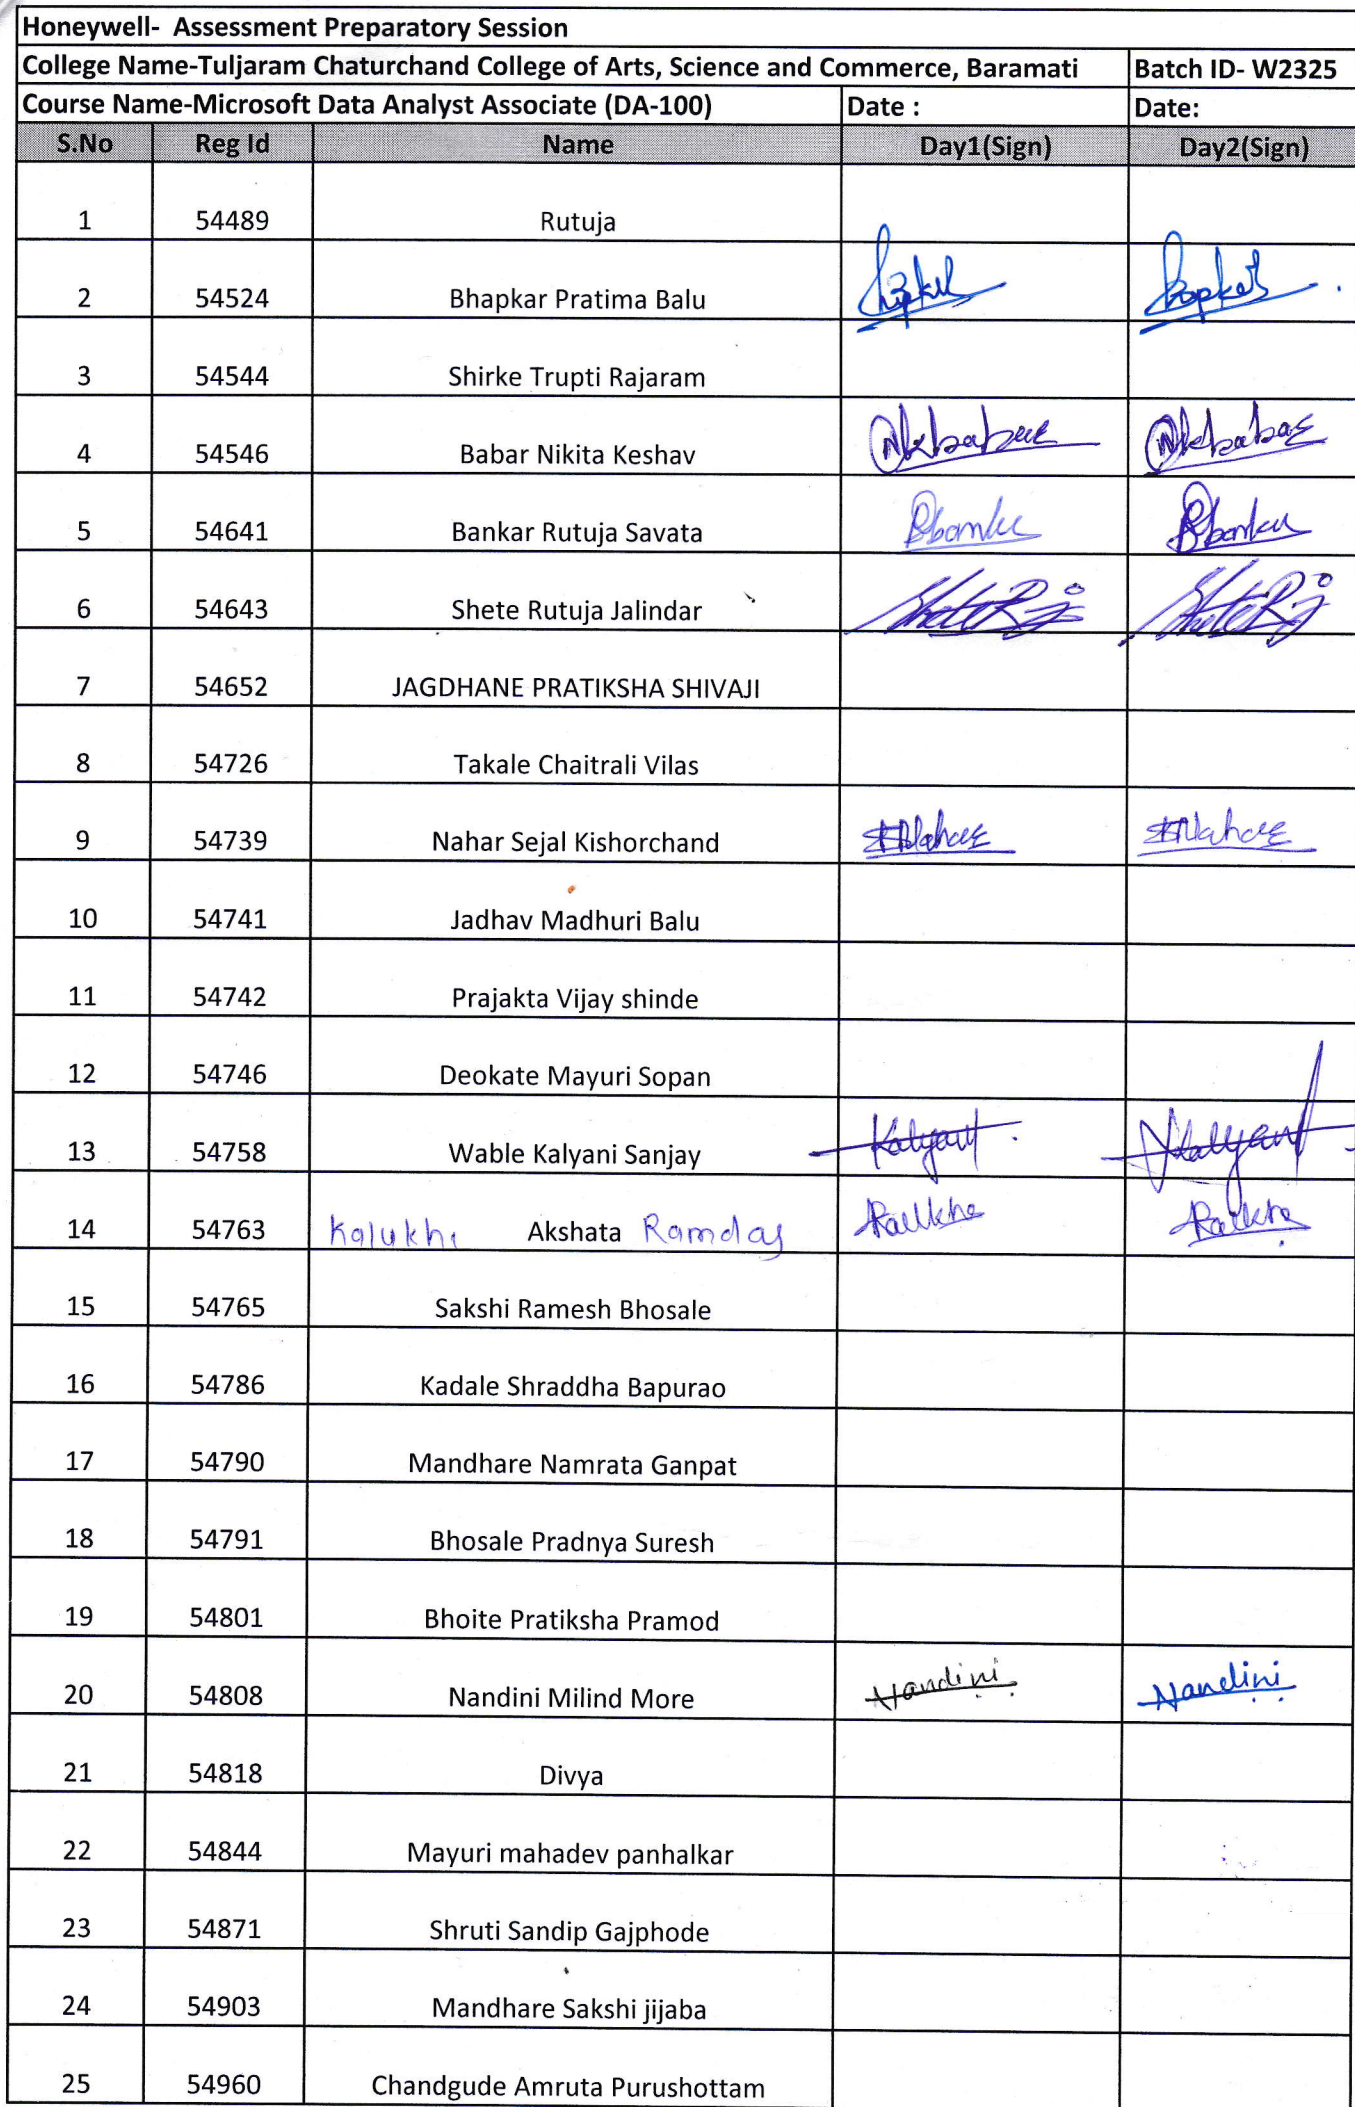 Honeywell- Assessment Preparatory Session
College Name-Tuljaram Chaturchand College of Arts, Science and Commerce, Baramati Batch ID- W2325
Course Name-Microsoft Data Analyst Associate (DA-100) Date : Date:
S.No Reg Id Name Day1(Sign) Day2(Sign)
1 54489 Rutuja
2 54524 Bhapkar Pratima Balu
3 54544 Shirke Trupti Rajaram
4 54546 Babar Nikita Keshav
5 54641 Bankar Rutuja Savata
6 54643 Shete Rutuja Jalindar
7 54652 JAGDHANE PRATIKSHA SHIVAJI
8 54726 Takale Chaitrali Vilas
9 54739 Nahar Sejal Kishorchand
10 54741 Jadhav Madhuri Balu
11 54742 Prajakta Vijay shinde
12 54746 Deokate Mayuri Sopan
13 54758 Wable Kalyani Sanjay
14 54763 Akshata Ramdas
15 54765 Sakshi Ramesh Bhosale
16 54786 Kadale Shraddha Bapurao
17 54790 Mandhare Namrata Ganpat
18 54791 Bhosale Pradnya Suresh
19 54801 Bhoite Pratiksha Pramod
20 54808 Nandini Milind More Nandini Nandini
21 54818 Divya
22 54844 Mayuri mahadev panhalkar
23 54871 Shruti Sandip Gajphode
24 54903 Mandhare Sakshi jijaba
25 54960 Chandgude Amruta Purushottam